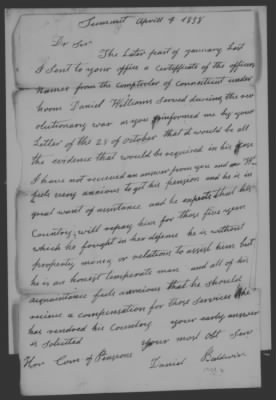 Summit April 4 1838
Dr Sir
The Later part of January Last
I Sent to your office a Certificate of the officers
Names from the Comptroler of Connecticut under
whom Daniel Williams Served dureing the rev
olutionary war as you informed me by your
Letter of the 28 of October that it would be all
the evidence that would be required in his Case
I have not received an answer from you and Mr W
feels very anxious to get his pension and he is in
great want of assistance and he expects that his
Country will repay him for those five years
which he fought in her defence he is without
property money or relations to assist him but
he is an honest temperate man and all of his
acquaintance feels anxious that he should
recieve a compensation for those Services he
has rendered his Country your early answer
is Solicited your most obt Serv
Hon Com of Pensions
Daniel Baldwin